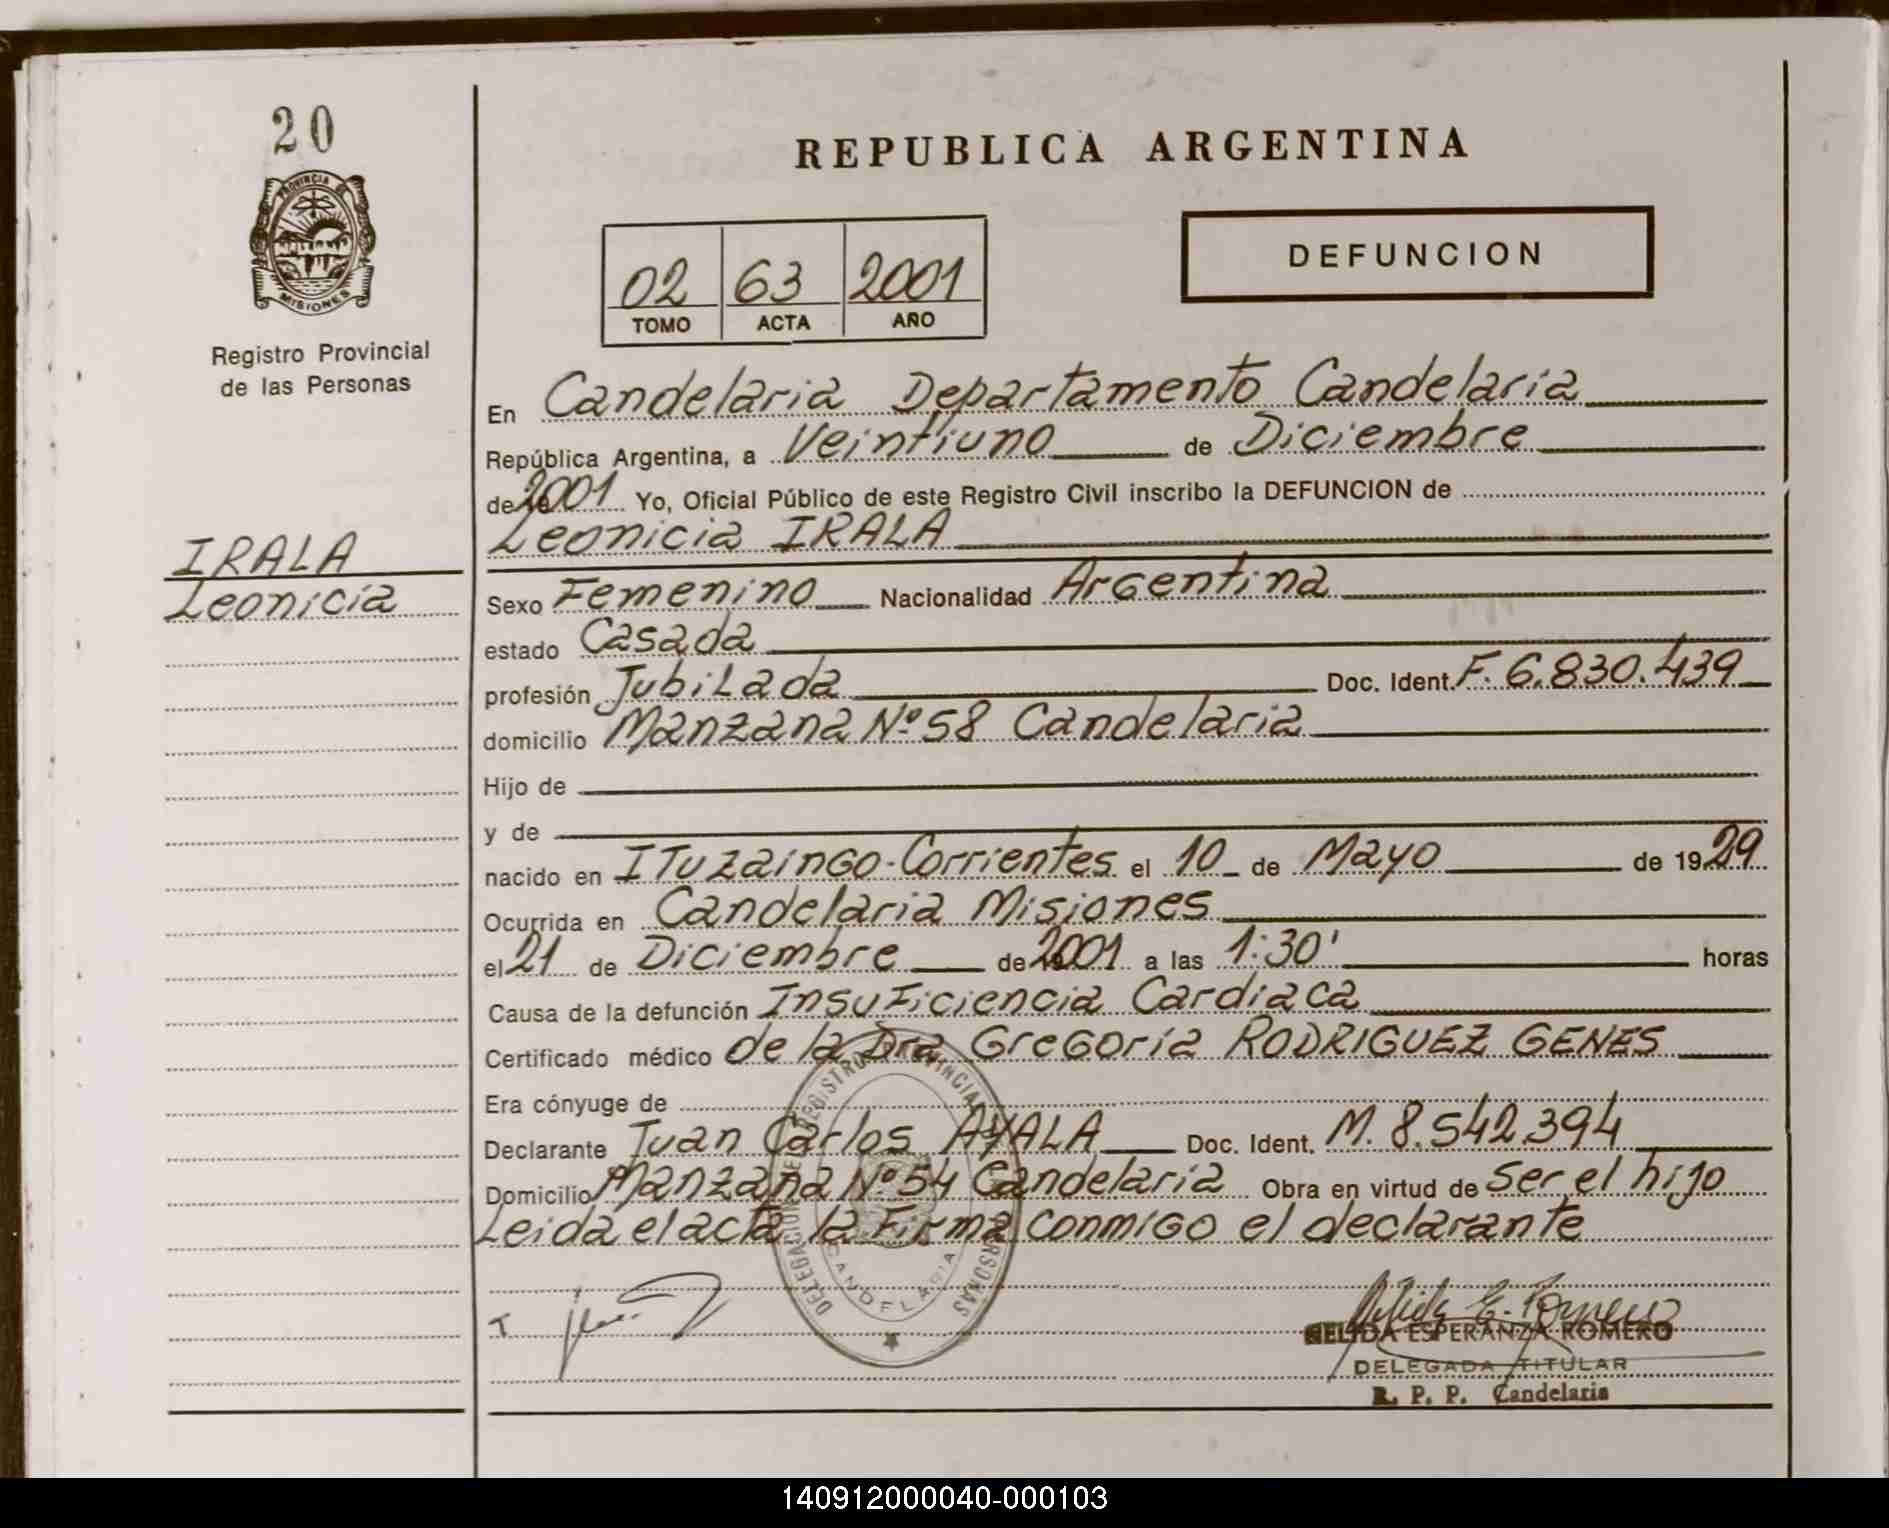 20
PROVINCIA DE
MISIONES
Registro Provincial
de las Personas
IRALA
Leonicia
REPUBLICA ARGENTINA
02 63 2001
TOMO ACTA AÑO
DEFUNCION
En Candelaria Departamento Candelaria
República Argentina, a Veintiuno de Diciembre
de 2001 Yo, Oficial Público de este Registro Civil inscribo la DEFUNCION de
Leonicia IRALA
Sexo Femenino Nacionalidad Argentina
estado Casada
profesión Jubilada Doc. Ident. F. 6.830.439
domicilio Manzana Nº 58 Candelaria
Hijo de
y de
nacido en ITuzaingo-Corrientes el 10 de Mayo de 1929
Ocurrida en Candelaria Misiones
el 21 de Diciembre de 2001 a las 1:30' horas
Causa de la defunción Insuficiencia Cardiaca
Certificado médico de la Dra Gregoria RODRIGUEZ GENES
Era cónyuge de
Declarante Juan Carlos AYALA Doc. Ident. M. 8.542.394
Domicilio Manzana Nº 54 Candelaria Obra en virtud de ser el hijo
Leida el acta la firma conmigo el declarante
DELEGACION DEL REGISTRO PROVINCIAL PERSONAS
CANDELARIA
NELIDA ESPERANZA ROMERO
DELEGADA TITULAR
R. P. P. Candelaria
140912000040-000103